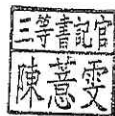 三等書記官
陳薏雯